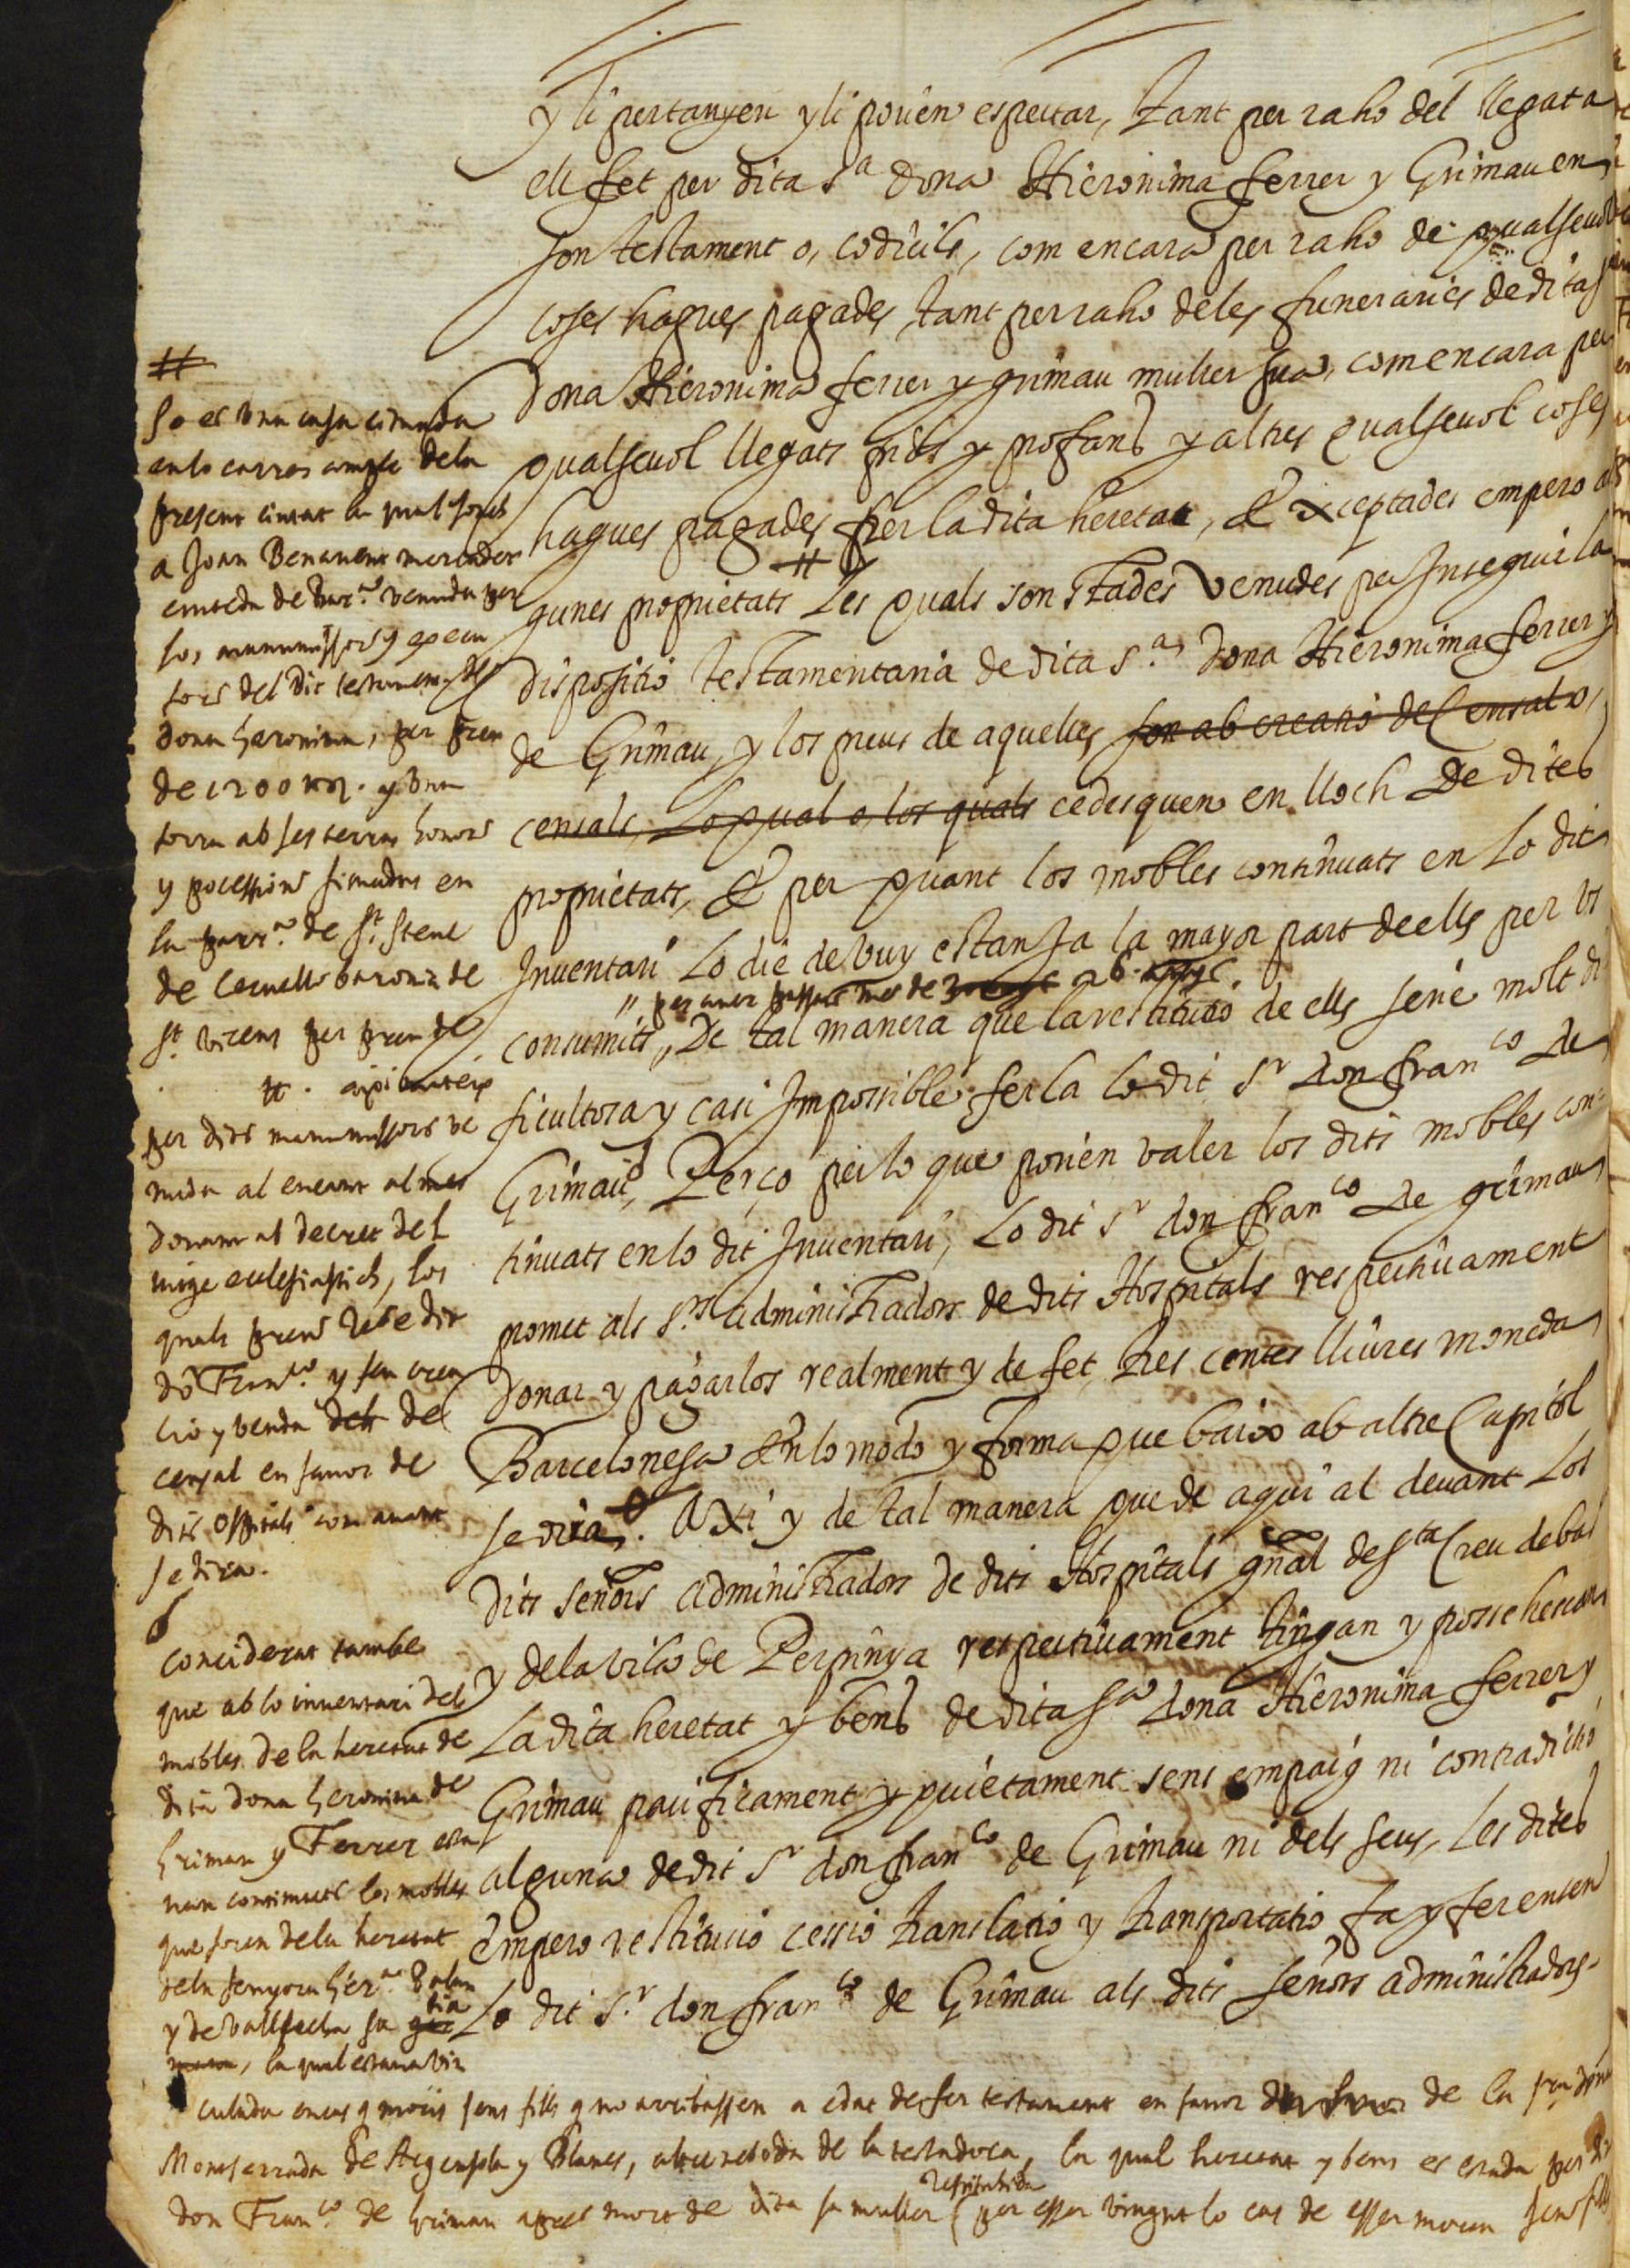 y li pertanyen y li poden espectar, tant per raho del llegat a
ell fet per dita Sa dona Hieronima ferrer y Grimau en
son testament o, codicils, com encara per raho de qualseuol
coses hagues pagades tant per raho de les funeraries de dita
dona Hieronima ferrer y grimau muller sua, com encara per
qualseuol llegats pios y profans y altres qualseuol coses
hagues pagades per la dita heretat, & exceptades empero al
gunes proprietats # Les quals son stades venudes per Inseguir la
dispositio testamentaria de dita Sa. dona Hieronima ferrer y
de Grimau, y los preus de aquelles son ab creatio de Censal o,
censals, Lo qual o, los quals cedesquen en lloch de dites
proprietats, & per quant los mobles continuats en Lo dit
Inuentari Lo die de vuy estan ja la mayor part de ells per vs
consumits, De tal manera que la restitutio de ells serie molt di
" per auer passats mes de 26 anys
ficultosa y casi Impossible fer la lo dit Sr don franco de
Grimau, Perço per lo que podien valer los dits mobles con=
tinuats en lo dit Inuentari, Lo dit Sr don franco de grimau
promet als Srs administradors de dits Hospitals respectiuament
donar y pagarlos realment y de fet, tres centes lliures moneda
Barcelonesa en lo modo y forma que baix ab altre Capitol
se dira. Axi y de tal manera que de aqui al deuant Los
dits señors administradors de dits Hospitals gñal de Sta Creu de bar
y de la vila de Perpinya respectiuament tingan y possehescan
La dita heretat y bens de dita Sa dona Hieronima ferrer y
Grimau pacificament y quietament sens empaig ni contradictio
alguna de dit Sr don franco de Grimau ni dels seus, Les dites
empero restitucio cessio translatio y transportatio fa y fer enten
Lo dit Sr. don franco de Grimau als dits señors administradors
#
so es vna casa cituada
en lo carrer ample de la
present ciutat la qual
a Joan Benauent mercader
ciuteda de Barna. venuda per
los manumissors y execu
tors del dit testament de
dona heronima, per preu
de 1200 ll. y vna
torra ab ses terras honors
y pocessions situadas en
la parra. de St. Steue
de Ceruello baronia de
St. vicens per preu de
ll. axi mateix
per dits manumissors ve
nuda al encant al mes
donant ab decret del
Iutge eclesiastich, los
quals preus rebe dit
dõ Franco. y feu crea
cio y venda dels del
censal en fauor de
dits ospitals com auant
se dira.
Conciderat tambe
que ab lo inuentari dels
mobles de la heretat de
dita dona heronima de
Griman y Ferrer esta
uan continuats los mobles
que foren de la heretat
de la senyora hiera.
y de Vallseca sa tia
, la qual estaua vin
culada en cas q moris sens fills q no arribassen a edat de fer testament en fauor de la sra dona
Monserrada de Argensola y Blanes, altre neboda de la testadora, la qual heretat y bens es estada per dit
don Franco. de Grimau apres mort de dita sa muller restituhida (per esser vingut lo cas de esser morta sens fills